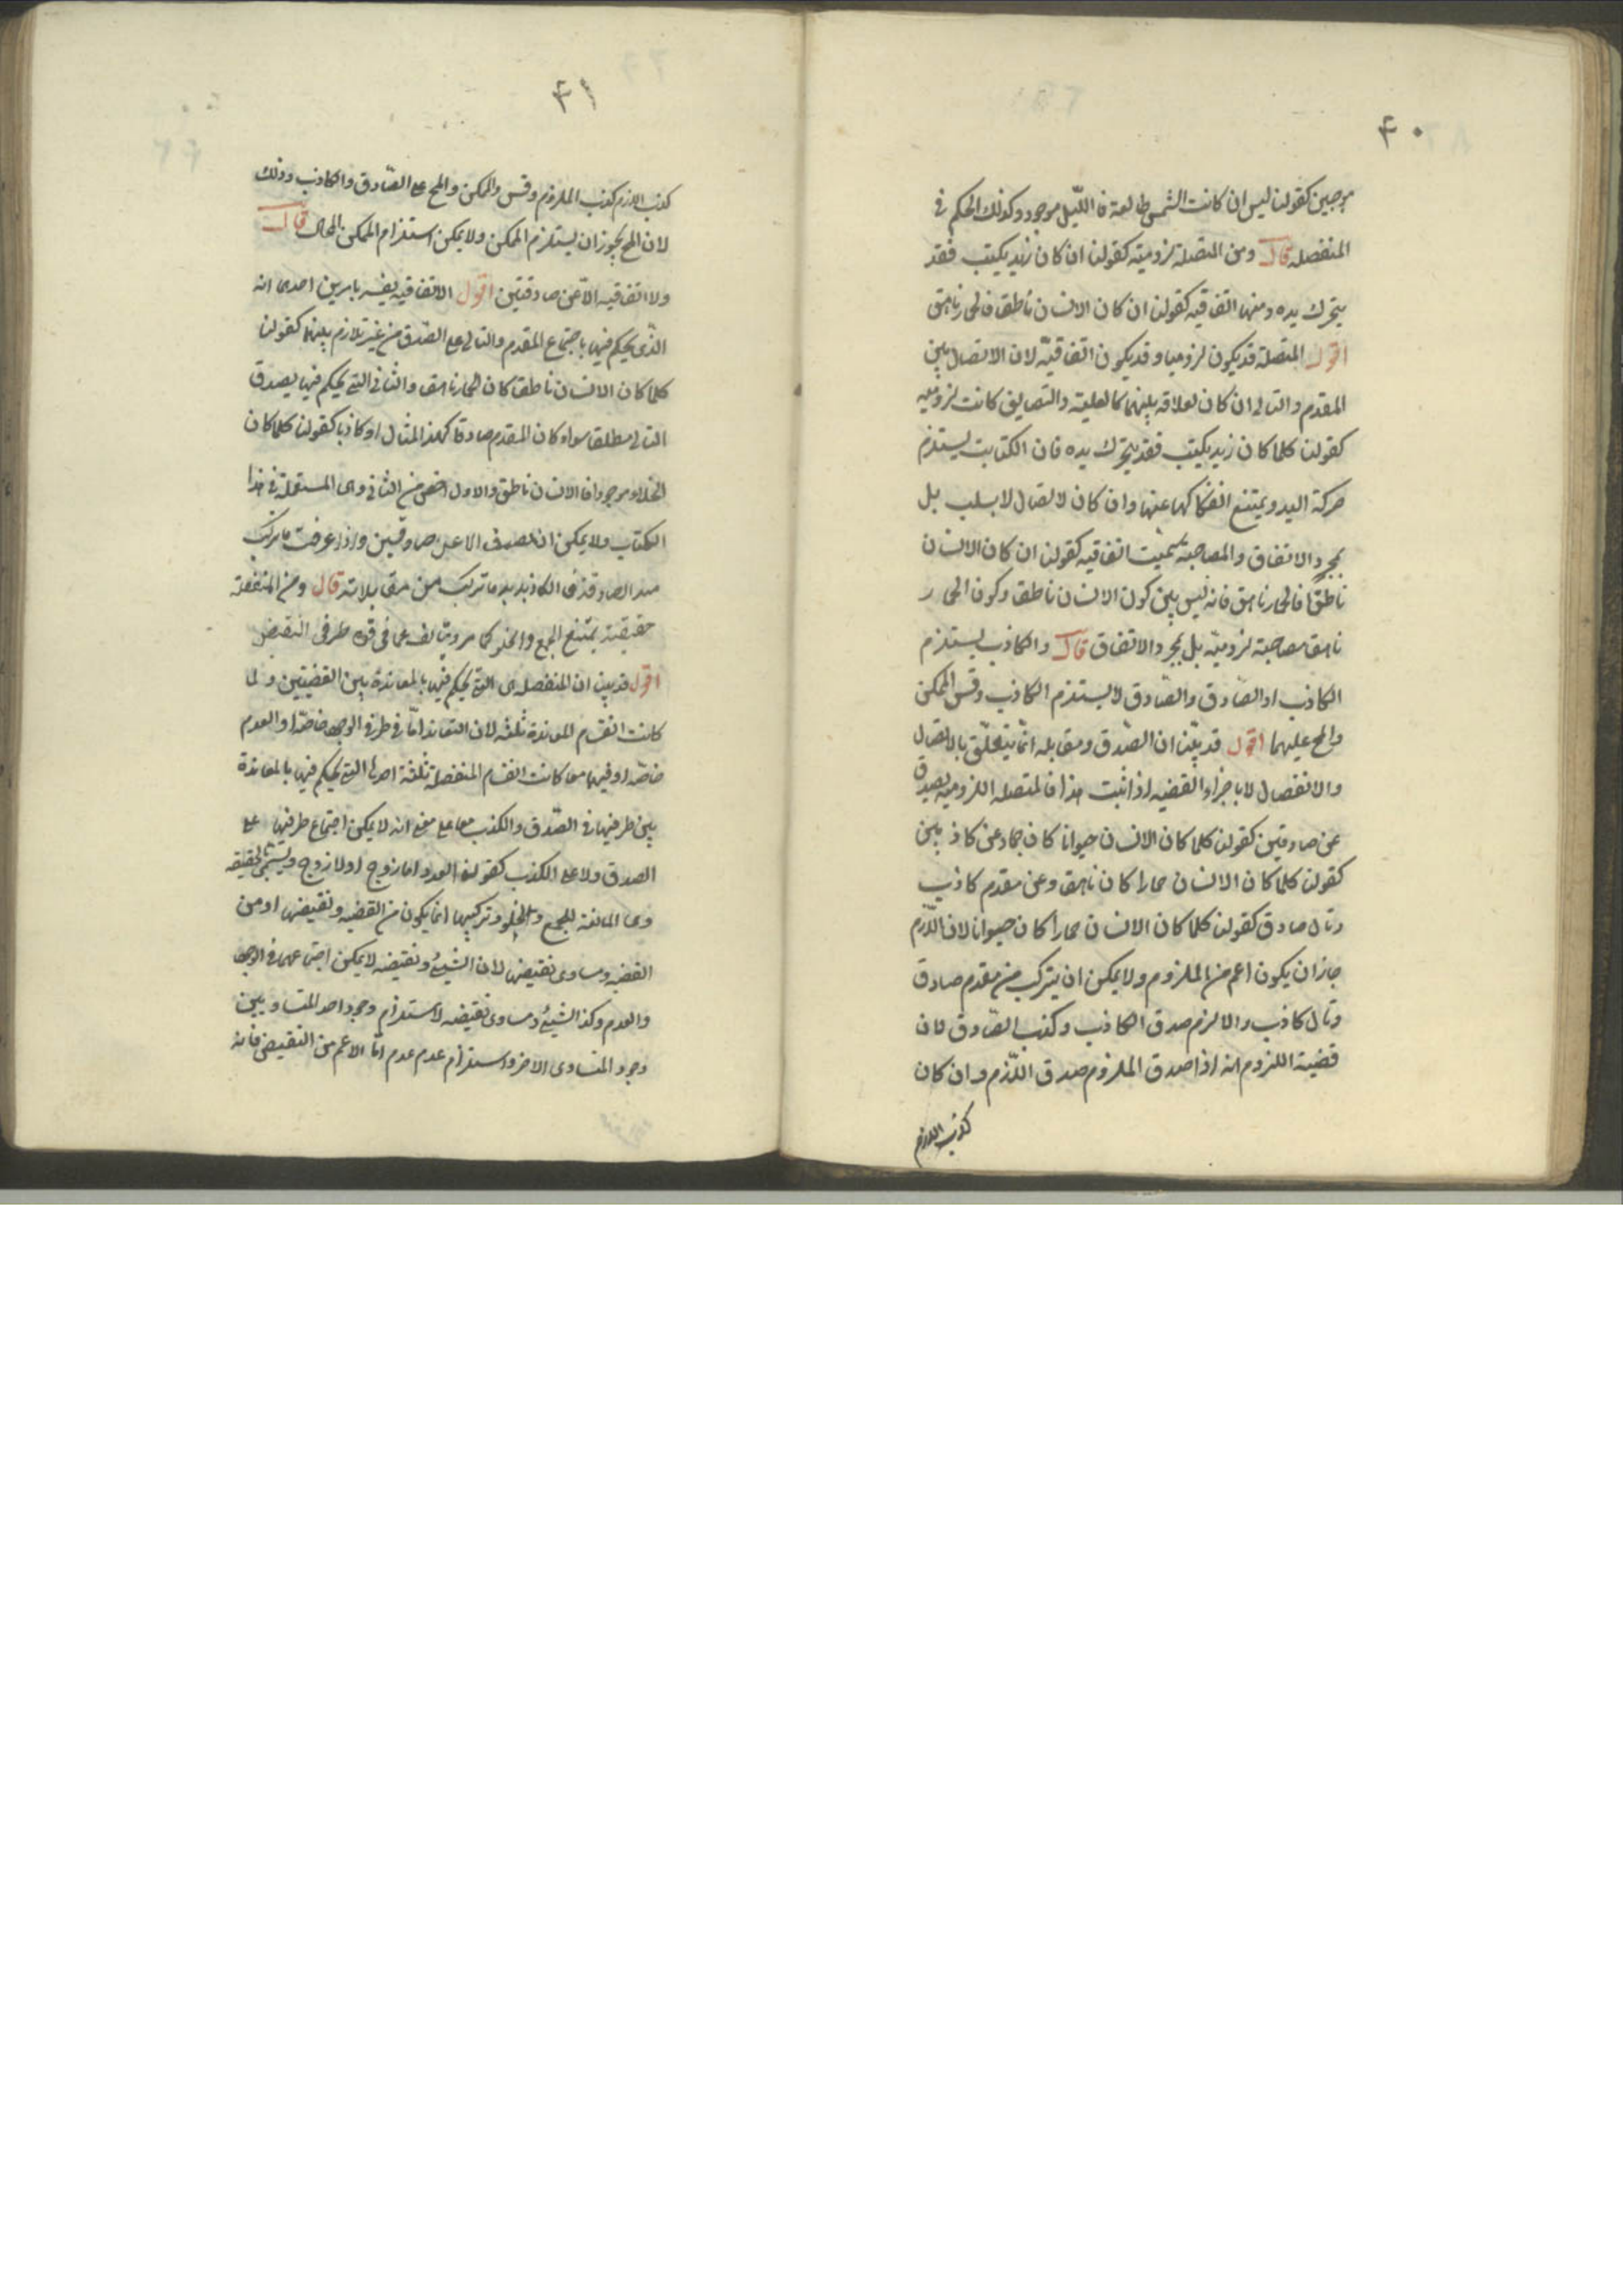 ۴۰
موجبين كقولنا ليس ان كانت الشمس طالعة فالليل موجود وكذلك الحكم فى
المنفصله قال ومن المتصلة لزوميته كقولنا ان كان زيد يكتب فقد
يتحرك يده ومنها اتفاقيه كقولنا ان كان الانسان ناطقا فالحمار ناهق
اقول المتصلة قد يكون لزوميا وقد يكون اتفاقيّه لان الاتصال بين
المقدم والتالى ان كان لعلاقه بينهما كالعلية والتضايف كانت لزوميه
كقولنا كلما كان زيد يكتب فقد يتحرك يده فان الكتابت يستلزم
حركة اليد ويمتنع انفكاكها عنها وان كان لاتصال لا بسلب بل
بمجرد الاتفاق والمصاحبة سميت اتفاقيه كقولنا ان كان الانسان
ناطقا فالحمار ناهق فانه ليس بين كون الانسان ناطقا وكون الحمار
ناهق مصاحبة لزوميّه بل بمجرد الاتفاق قال والكاذب يستلزم
الكاذب او الصّادق والصّادق لا يستلزم الكاذب وقس الممكن
والمح عليهما اقول قد بيّنا ان الصّدق ومقابله انما يتعلّق بالاتصال
والانفصال لا باجزاء القضيه اذا ثبت هذا فالمتصله اللزوميه يصدق
عن صادقين كقولنا كلما كان الانسان حيوانا كان جمادعن كاذبين
كقولنا كلما كان الانسان حمارا كان ناهق وعن مقدم كاذب
وتال صادق كقولنا كلما كان الانسان حمارا كان حيوانا لان اللّازم
جاز ان يكون اعم من الملزوم ولا يمكن ان يتركب من مقدم صادق
وتال كاذب والا لزم صدق الكاذب وكذب الصّادق لان
قضية اللزوم انه اذا صدق الملزوم صدق اللّازم وان كان
كذب اللازم
۴۱
كذب اللازم كذب الملزوم وقس والممكن والمح على الصّادق والكاذب وذلك
لان المح يجوز ان يستلزم الممكن ولا يمكن استلزام الممكن المحال قال
ولا اتفاقيه الا عن صادقتين اقول الاتفاقيه يفسر بامرين احدى انه
الذّى يحكم فيها باجتماع المقدم والتالى على الصّدق من غير تلازم بينهما كقولنا
كلما كان الانسان ناطقا كان الحمار ناهق والثانى التى يحكم فيها بصدق
التالى مطلقا سواء كان المقدم صادقا كهذا المثال او كاذبا كقولنا كلما كان
الخلاء موجودا فالانسان ناطق والاول اخص من الثانى وهى المستعملة فى هذا
الكتاب ولا يمكن ان يصدق الا عن صادقين واذا عرفت ما تركب
منه الصادقة فالكاذبه ما تركب من مقابلاته قال ومن المنفصلة
حقيقية يمتنع الجمع والخلو كما مر ويتالف عما فى قوة طرفى النقيض
اقول قد بين ان المنفصله هى التى يحكم فيها بالمعاندة بين القضيتين ولما
كانت اقسام المعاندة ثلثه لان التعاند امّا فى طرفى الوجود خاصّه او العدم
خاصّه او فيهما معا كانت اقسام المنفصلة ثلثة احدها التى يحكم فيها بالمعاندة
بين طرفيها فى الصّدق والكذب معا على معنى انه لا يمكن اجتماع طرفيها على
الصدق ولا على الكذب كقولنا العدد اما زوج او لا زوج ويسمّى الحقيقه
وهى المانعة للجمع والخلو وتركيبها انما يكون من القضيه ونقيضها او من
القضيه ومساوى نقيضها لان الشيئ ونقيضه لا يمكن اجتماعهما فى الوجود
والعدم وكذا الشيئ ومساوى نقيضه لاستلزام وجود احد المتساويين
وجود المتساوى الاخر واستلزام عدم عدم امّا الاعم من النقيض فانه